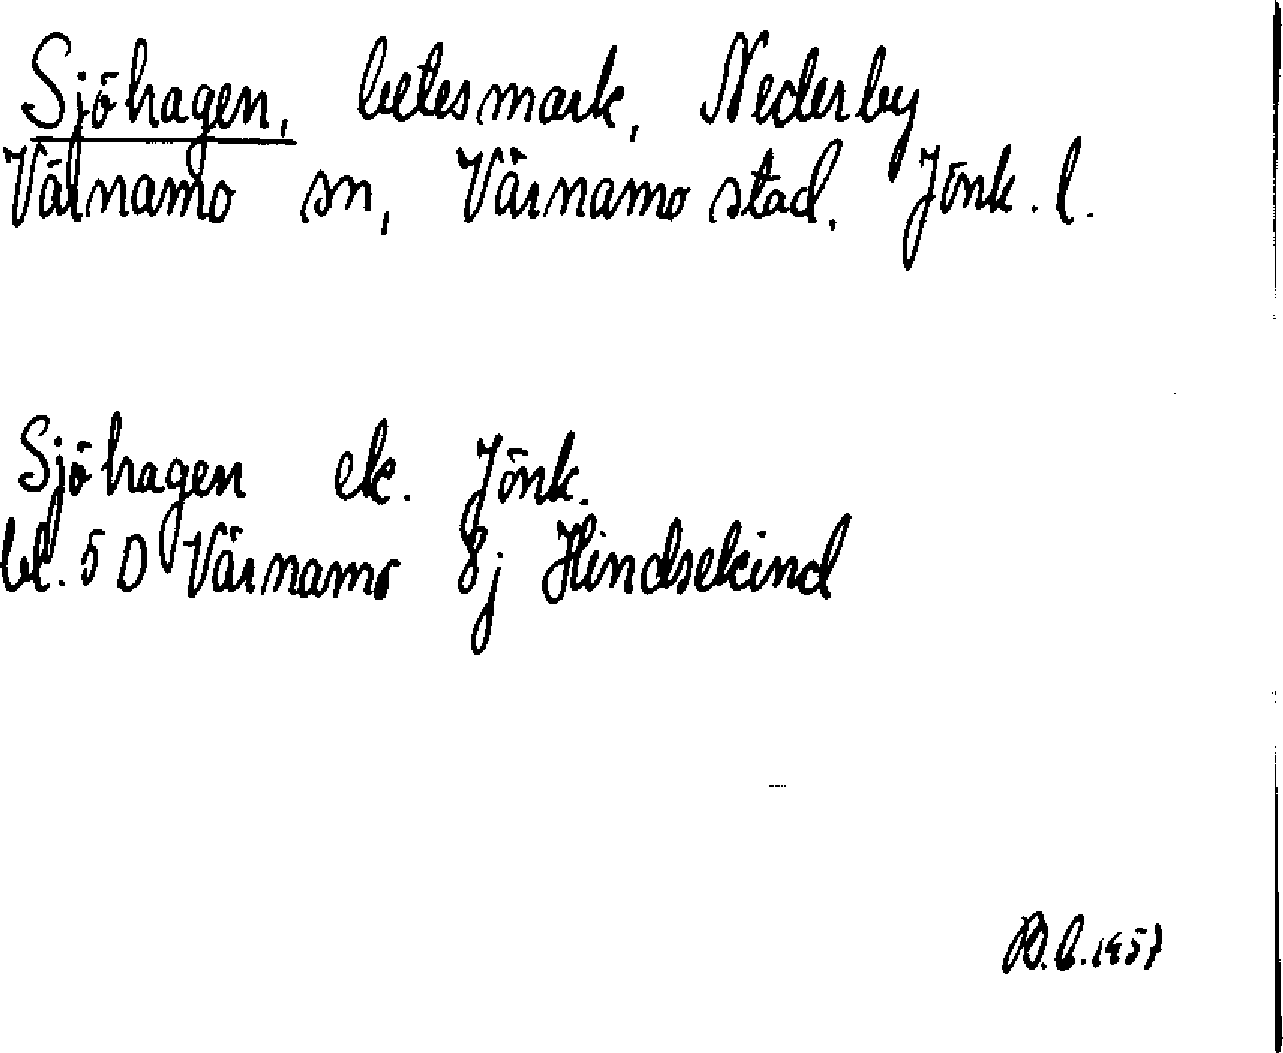 Sjöhagen, betesmark, Nederby
Värnamo sn, Värnamo stad. Jönk. l.
Sjöhagen ek. Jönk.
bl. 5 D Värnamo 8j Hindsekind
B.C. 1957